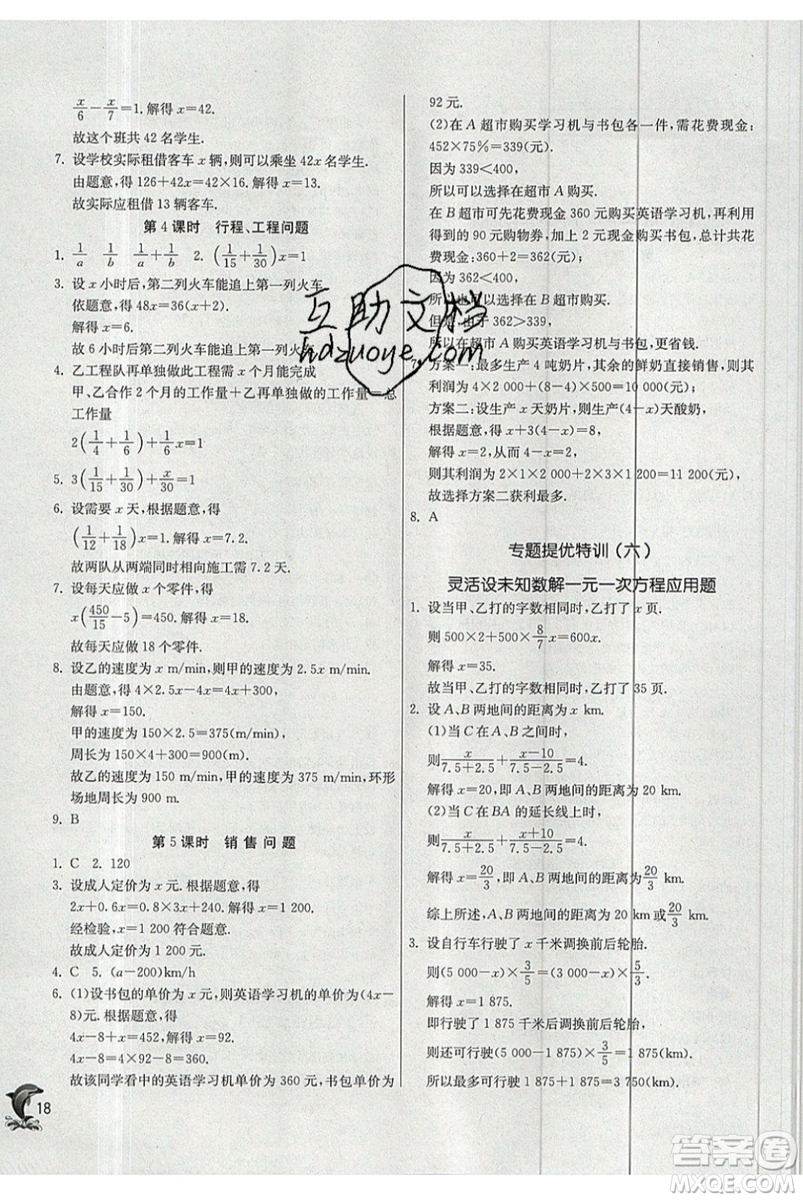 x/6 - x/7 =1. 解得 x=42.
故这个班共 42 名学生.
7. 设学校实际租借客车 x 辆,则可以乘坐 42x 名学生.
由题意,得 126+42x=42×16. 解得 x=13.
故实际应租借 13 辆客车.
第 4 课时 行程、工程问题
1. 1/a 1/b 1/a + 1/b 2. (1/15 + 1/30)x=1
3. 设 x 小时后,第二列火车能追上第一列火车.
依题意,得 48x=36(x+2).
解得 x=6.
故 6 小时后第二列火车能追上第一列火车.
4. 乙工程队再单独做此工程需 x 个月能完成
甲、乙合作 2 个月的工作量+乙再单独做的工作量=总
工作量
2(1/4 + 1/6) + 1/6 x=1
5. 3(1/15 + 1/30) + x/30 =1
6. 设需要 x 天,根据题意,得
(1/12 + 1/18)x=1. 解得 x=7.2.
故两队从两端同时相向施工需 7.2 天.
7. 设每天应做 x 个零件.
x(450/15 -5)=450. 解得 x=18.
故每天应做 18 个零件.
8. 设乙的速度为 x m/min,则甲的速度为 2.5x m/min.
由题意,得 4×2.5x-4x=300+2×300.
解得 x=150.
甲的速度为 150×2.5=375(m/min),
周长为 150×4+300=900(m).
故乙的速度为 150 m/min,甲的速度为 375 m/min,环形
场地周长为 900 m.
9. B
第 5 课时 销售问题
1. C 2. 120
3. 设成人定价为 x 元. 根据题意,得
2x+0.6x=0.8×3x+240. 解得 x=1 200.
经检验,x=1 200 符合题意.
故成人定价为 1 200 元.
4. C 5. (a-200)km/h
6. (1)设书包的单价为 x 元,则英语学习机的单价为(4x-
8)元.
4x-8+x=452,解得 x=92.
4x-8=4×92-8=360.
故该同学看中的英语学习机单价为 360 元,书包单价为
92 元.
(2)在 A 超市购买学习机与书包各一件,需花费现金:
452×75%=339(元).
因为 339<400,
所以可以选择在超市 A 购买.
在 B 超市可先花费现金 360 元购买英语学习机,再利用
得到的 90 元购物券,加上 2 元现金购买书包,总计共花
费现金:360+2=362(元);
因为 362<400,
所以也可以选择在 B 超市购买.
但是,由于 362>339,
所以在 A 超市购买英语学习机与书包,更省钱.
7. 方案一:最多生产 4 吨奶片,其余的鲜奶直接销售,则其
利润为 4×2 000+(8-4)×500=10 000(元).
方案二:设生产 x 天奶片,则生产(4-x)天酸奶,
根据题意,得 x+3(4-x)=8,
解得 x=2,从而 4-x=2,
则其利润为 2×1×2 000+2×3×1 200=11 200(元),
故选择方案二获利最多.
8. A
专题提优特训(六)
灵活设未知数解一元一次方程应用题
1. 设当甲、乙打的字数相同时,乙打了 x 页.
则 500×2+500× 8/7 x=600x.
解得 x=35.
故当甲、乙打的字数相同时,乙打了 35 页.
2. 设 A、B 两地间的距离为 x km.
(1)当 C 在 A、B 之间时,
则 x/(7.5+2.5) + (x-10)/(7.5-2.5) =4.
解得 x=20,即 A、B 两地间的距离为 20 km.
(2)当 C 在 BA 的延长线上时,
则 x/(7.5+2.5) + (x+10)/(7.5-2.5) =4.
解得 x= 20/3 ,即 A、B 两地间的距离为 20/3 km.
综上所述,A、B 两地间的距离为 20 km 或 20/3 km.
3. 设自行车行驶了 x 千米调换前后轮胎.
则(5 000-x)× 3/5 =(5 000- 5/3 x).
解得 x=1 875.
即行驶了 1 875 千米后调换前后轮胎.
则还可行驶(5 000-1 875)× 3/5 =1 875(千米).
所以最多可行驶 1 875+1 875=3 750(千米).
18
互助文档
hdzuoye.com
答案圈
MXQE.COM